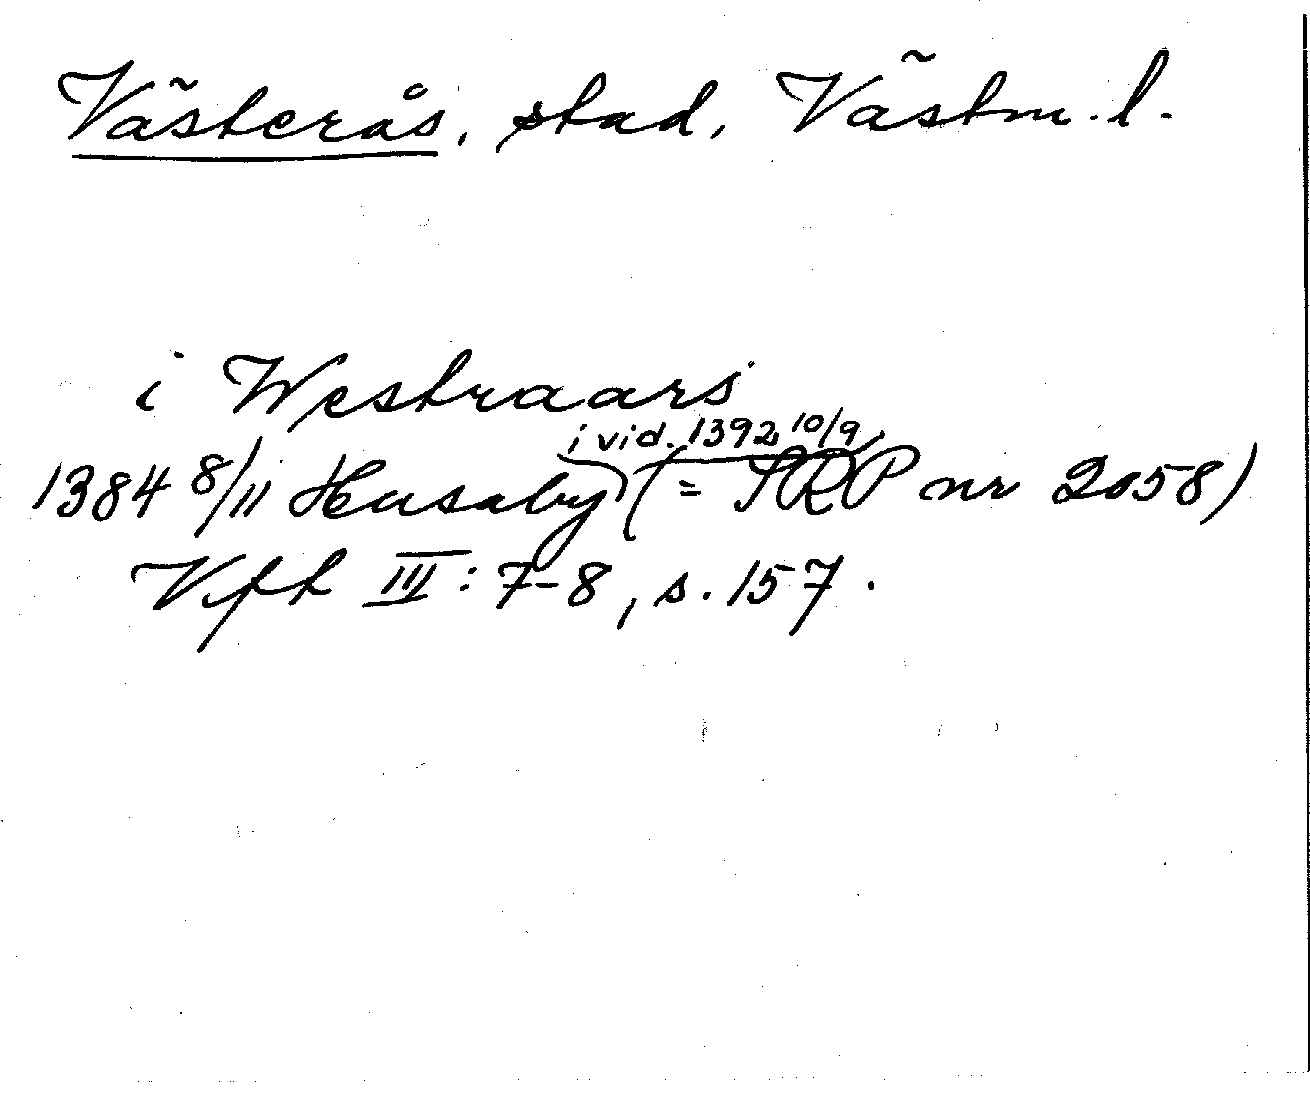 Västerås, stad, Västm. l.
i Westraars
i vid. 1392 10/9
1384 8/11 Husaby (= SRP nr 2058)
Vft III: 7-8, s. 157.